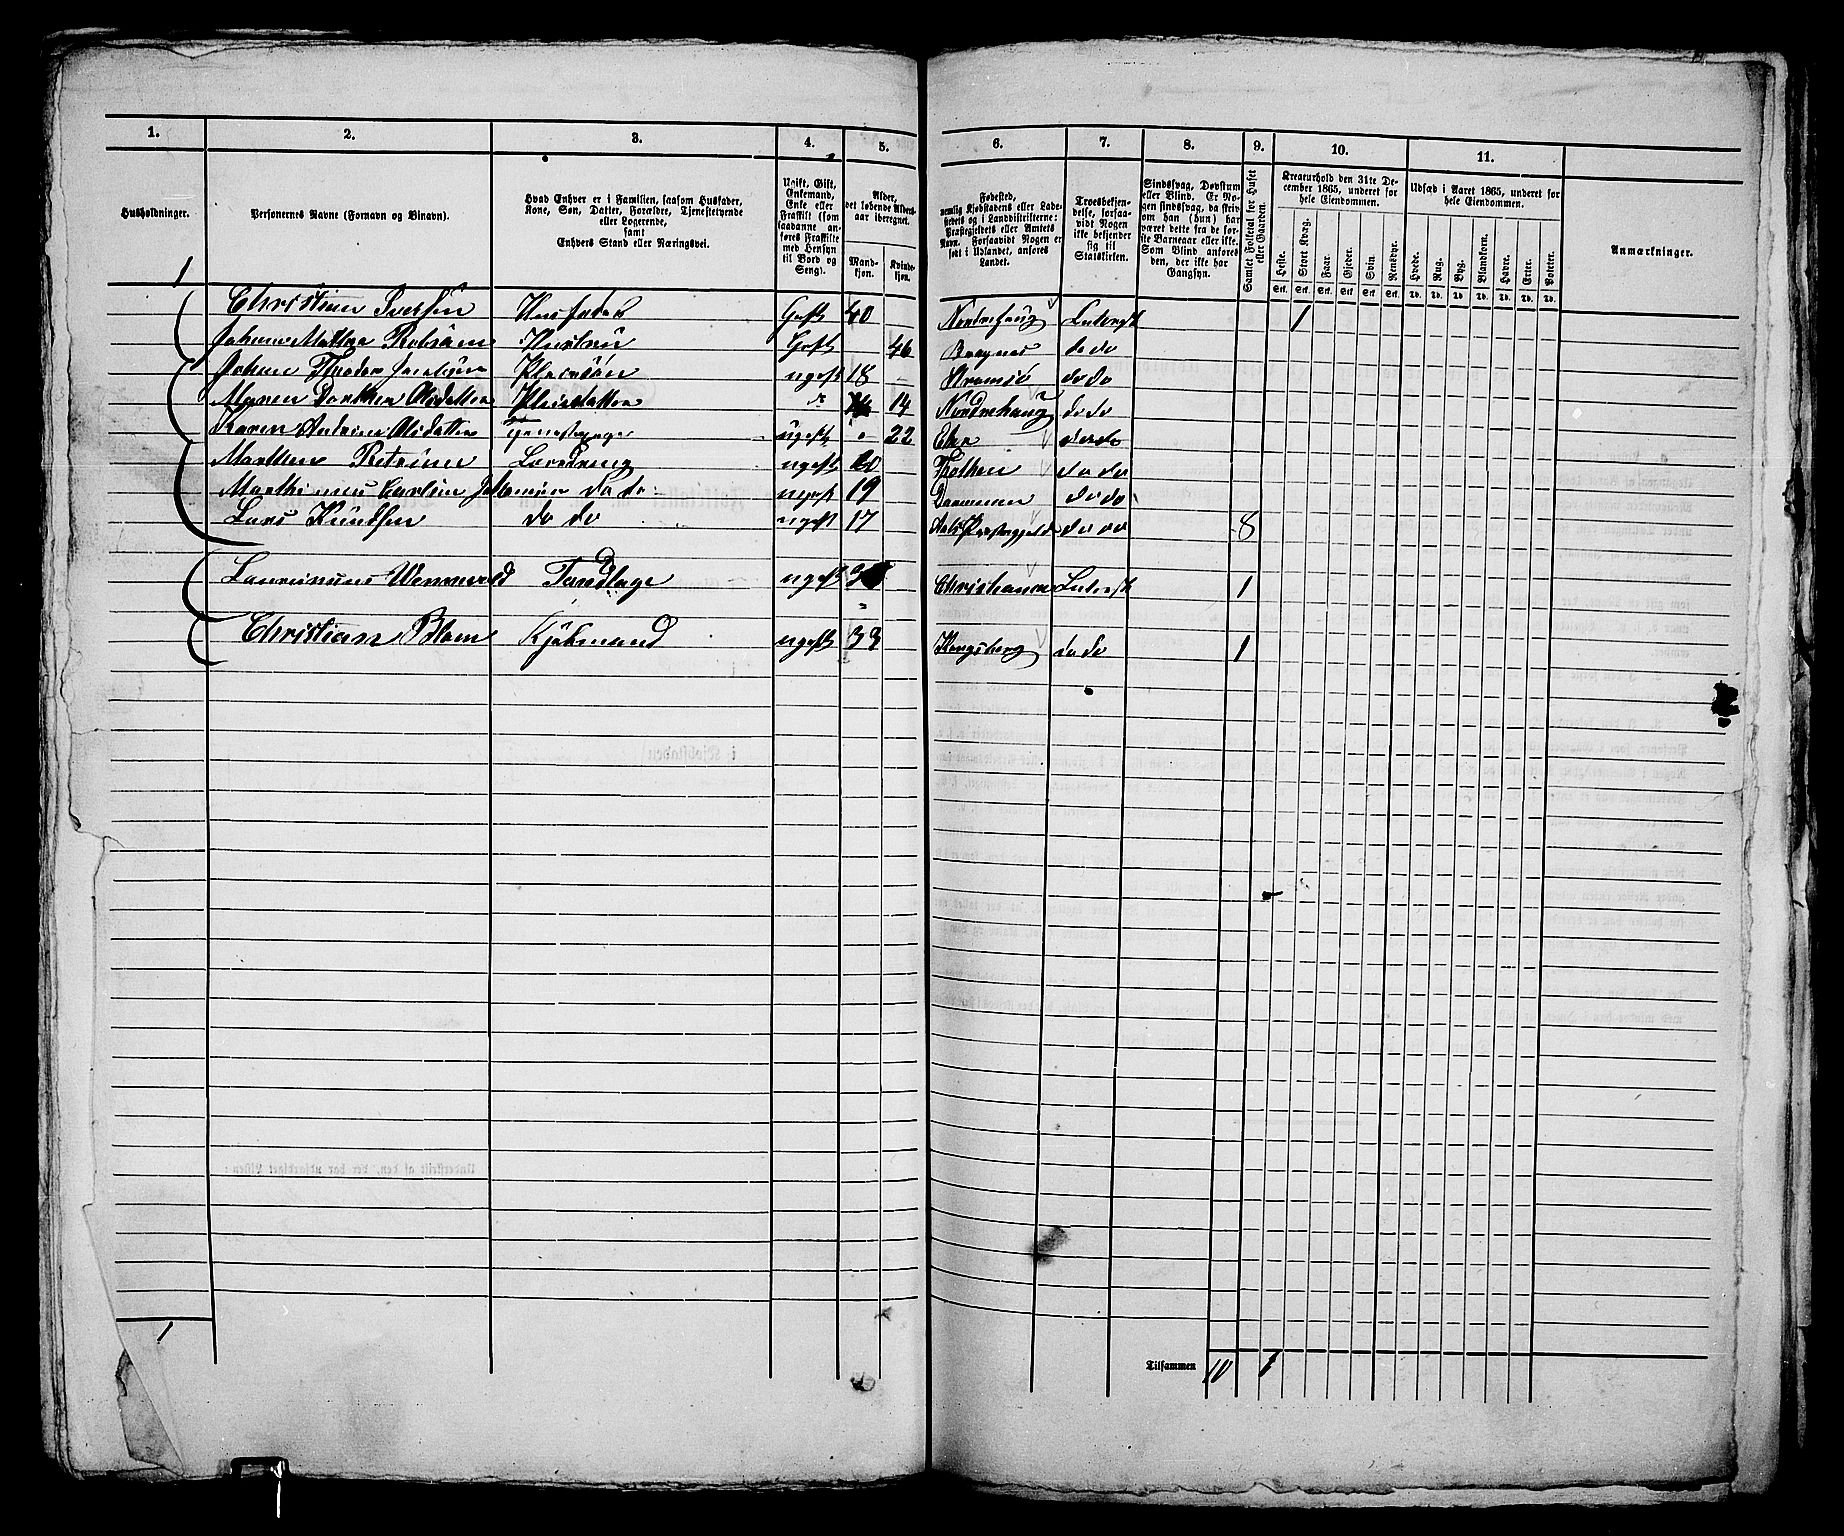 1. 2. 3. 4. 5. 6. 7. 8. 9. 10. 11.
Husholdninger.
Personernes Navne (Fornavn og Binavn).
Hvad Enhver er i Familien, saasom Husfader,
Kone, Søn, Datter, Forældre, Tjenestetyende
eller Logerende,
samt
Enhvers Stand eller Næringsvei.
Ugift, Gift,
Enkemand,
Enke eller
Fraskilt (som
saadanne an-
føres Fraskilte
med Hensyn
til Bord og
Seng).
Alder,
det løbende Alders-
aar iberegnet.
Mand-
kjøn.
Kvinde-
kjøn.
Fødested,
nemlig Kjøbstadens eller Lade-
stedets og i Landdistrikterne:
Præstegjeldets eller Amtets
Navn. Forsaavidt Nogen er
født i Udlandet, anføres
Landet.
Troesbekjen-
delse, forsaa-
vidt Nogen
ikke bekjender
sig til
Statskirken.
Sindssvag, Døvstum
eller Blind. Er No-
gen sindssvag, da skriv
om han (hun) har
været dette fra de før-
ste Barneaar eller ikke.
Som Blind anføres
den, der ikke har
Gangsyn.
Samlet Folketal for Huset
eller Gaarden.
Kreaturhold den 31te De-
cember 1865, underet for
hele Eiendommen.
Heste. Stort Kvæg. Faar. Gjeder. Svin. Rensdyr.
Stk. Stk. Stk. Stk. Stk. Stk.
Udsæd i Aaret 1865, underet for
hele Eiendommen.
Hvede. Rug. Byg. Blandkorn. Havre. Erter. Poteter.
Td. Td. Td. Td. Td. Td. Td.
Anmærkninger.
1
Christian Iversen Husfader Gift 40 Norderhoug Luthersk 1
Johanne Mathea Hustru Gift 46 Bragnes do do
Johan Pleiesøn ugift 18 Strømsø do do
Maren Dorthea Olsdatter Pleiedatter do 14 Norderhoug do do
Karen Andrine Olsdatter Tjenestepige ugift 22 Eker do do
Marthin Petrinus Lærdreng ugift 20 Thoten do do
Marthinius Carlin Johansen do do ugift 19 Drammen do do
Lars Knudsen do do ugift 17 Aals Præstegjeld do do 8
Laurinius Wennevold Tandlæge ugift Christiania Luthersk 1
Christian Blom Kjøbmand ugift 33 Kongsberg do do 1
1
Tilsammen 10 1